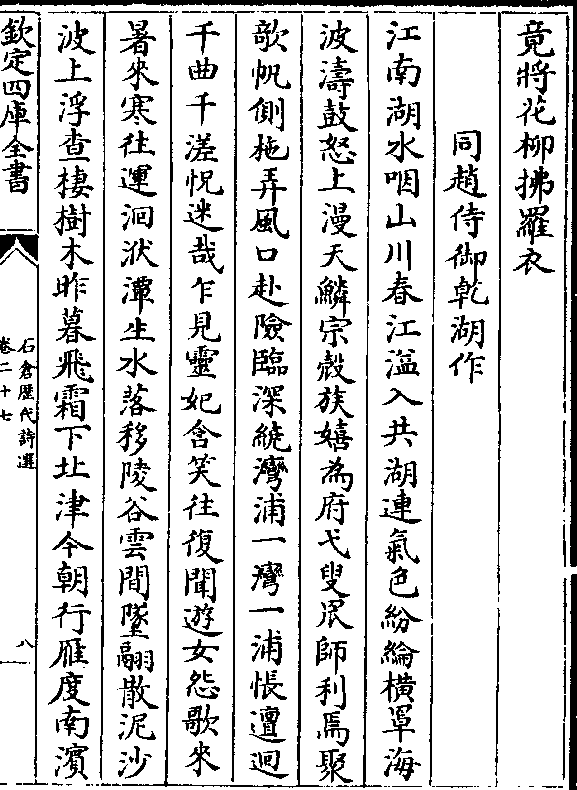 竟將花柳拂羅衣
同趙侍御乾湖作
江南湖水咽山川春江溢入共湖連氣色紛綸橫罩海
波濤鼓怒上漫天鱗宗殻族嬉為府弋叟罛師利焉聚
歌帆側柂弄風口赴險臨深繞灣浦一灣一浦悵邅迴
千曲千溠怳迷哉乍見靈妃含笑往復聞遊女怨歌來
暑來寒往運洄洑潭生水落移陵谷雲間墜翮散泥沙
波上浮查棲樹木昨暮飛霜下北津今朝行雁度南濱
欽定四庫全書
石倉歷代詩選
卷二十七
八